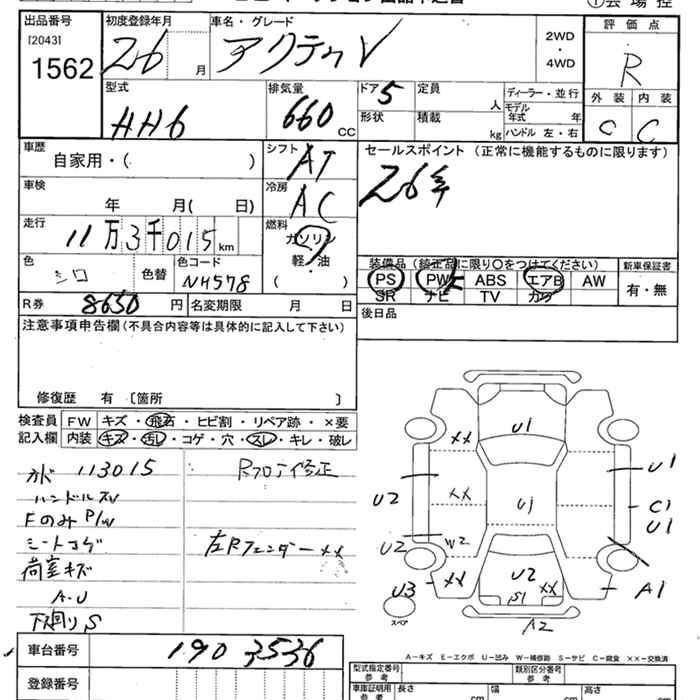 出品番号
[2043]
1562
初度登録年月
26 月
車名・グレード
アクティV
2WD
・
4WD
評価点
R
外装 内装
C C
型式
HH6
排気量
660 CC
ドア 5
形状
定員 人
積載 kg
ディーラー・並行
モデル年式 年
ハンドル 左・右
車歴
自家用・( )
シフト AT
セールスポイント (正常に機能するものに限ります)
26年
車検
年 月( 日)
冷房 AC
走行
11万3千015km
燃料
ガソリン
軽・油
( )
色
シロ
色替
色コード
NH578
装備品 (純正品に限り〇をつけてください)
PS PW ABS エアB AW
SR ナビ TV カワ
新車保証書
有・無
R券 8650 円
名変期限 月 日
後日品
注意事項申告欄(不具合内容等は具体的に記入して下さい)
修復歴 有 〔箇所 〕
検査員
記入欄
FW キズ・飛石・ヒビ割・リペア跡・×要
内装 キズ・汚レ・コゲ・穴・スレ・キレ・破レ
113015
ハンドルスレ
Fのみ P/W
シートコゲ
荷室キズ
A・U
下廻りS
Rフロア修正
左Rフェンダー ××
U1
××
U1
U2
××
U1
C1
U1
U2
W2
U3
××
U2
S1
××
A1
A2
スペア
A-キズ E-エクボ U-凹み W-補修跡 S-サビ C-腐食 ××-交換済
車台番号
1903536
登録番号
型式指定番号
参考
類別区分番号
参考
車庫証明用
参考
長さ cm
幅 cm
高さ